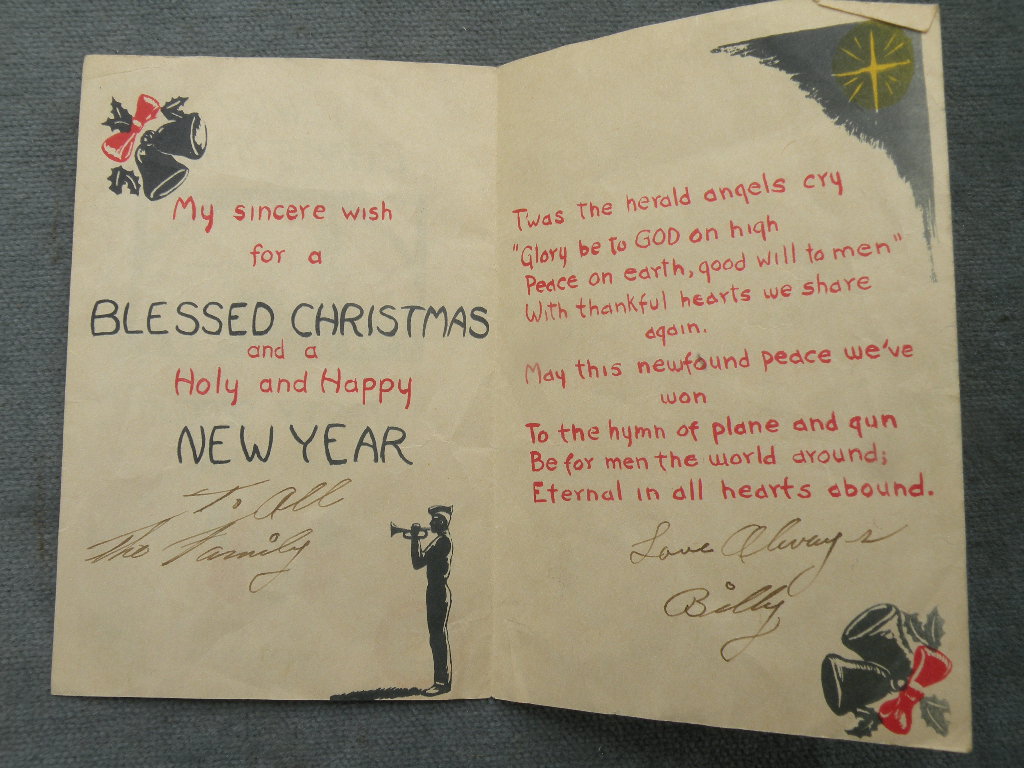 My sincere wish
for a
BLESSED CHRISTMAS
and a
Holy and Happy
NEW YEAR
To All
The Family
Twas the herald angels cry
"Glory be to GOD on high
Peace on earth, good will to men"
With thankful hearts we share
again.
May this newfound peace we've
won
To the hymn of plane and gun
Be for men the world around;
Eternal in all hearts abound.
Love Always
Billy